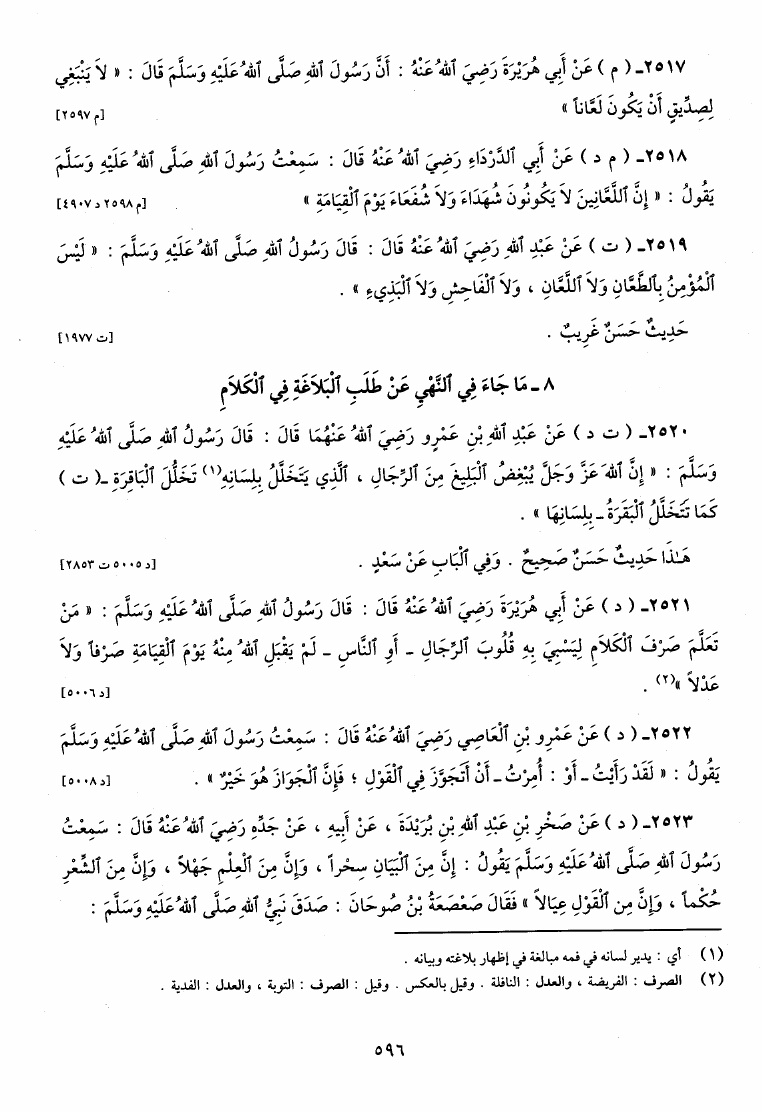 ٢٥١٧ـ ( م ) عَنْ أَبِي هُرَيْرَةَ رَضِيَ ٱللهُ عَنْهُ : أَنَّ رَسُولَ ٱللهِ صَلَّى ٱللهُ عَلَيْهِ وَسَلَّمَ قَالَ : « لاَ يَنْبَغِي
لِصِدِّيقٍ أَنْ يَكُونَ لَعَّاناً » [م ٢٥٩٧]
٢٥١٨ـ ( م د ) عَنْ أَبِي ٱلدَّرْدَاءِ رَضِيَ ٱللهُ عَنْهُ قَالَ : سَمِعْتُ رَسُولَ ٱللهِ صَلَّى ٱللهُ عَلَيْهِ وَسَلَّمَ
يَقُولُ : « إِنَّ ٱللَّعَّانِينَ لاَ يَكُونُونَ شُهَدَاءَ وَلاَ شُفَعَاءَ يَوْمَ ٱلْقِيَامَةِ » [م ٢٥٩٨ د ٤٩٠٧]
٢٥١٩ـ ( ت ) عَنْ عَبْدِ ٱللهِ رَضِيَ ٱللهُ عَنْهُ قَالَ : قَالَ رَسُولُ ٱللهِ صَلَّى ٱللهُ عَلَيْهِ وَسَلَّمَ : « لَيْسَ
ٱلْمُؤْمِنُ بِٱلطَّعَّانِ وَلاَ ٱللَّعَّانِ ، وَلاَ ٱلْفَاحِشِ وَلاَ ٱلْبَذِيءِ » .
حَدِيثٌ حَسَنٌ غَرِيبٌ . [ت ١٩٧٧]
٨ ـ مَا جَاءَ فِي ٱلنَّهْيِ عَنْ طَلَبِ ٱلْبَلاَغَةِ فِي ٱلْكَلاَمِ
٢٥٢٠ـ ( ت د ) عَنْ عَبْدِ ٱللهِ بْنِ عَمْرٍو رَضِيَ ٱللهُ عَنْهُمَا قَالَ : قَالَ رَسُولُ ٱللهِ صَلَّى ٱللهُ عَلَيْهِ
وَسَلَّمَ : « إِنَّ ٱللهَ عَزَّ وَجَلَّ يُبْغِضُ ٱلْبَلِيغَ مِنَ ٱلرِّجَالِ ، ٱلَّذِي يَتَخَلَّلُ بِلِسَانِهِ(١) تَخَلُّلَ ٱلْبَاقِرَةِ ـ( ت )
كَمَا تَتَخَلَّلُ ٱلْبَقَرَةُ ـ بِلِسَانِهَا » .
هَـٰذَا حَدِيثٌ حَسَنٌ صَحِيحٌ . وَفِي ٱلْبَابِ عَنْ سَعْدٍ . [د ٥٠٠٥ ت ٢٨٥٣]
٢٥٢١ـ ( د ) عَنْ أَبِي هُرَيْرَةَ رَضِيَ ٱللهُ عَنْهُ قَالَ : قَالَ رَسُولُ ٱللهِ صَلَّى ٱللهُ عَلَيْهِ وَسَلَّمَ : « مَنْ
تَعَلَّمَ صَرْفَ ٱلْكَلاَمِ لِيَسْبِيَ بِهِ قُلُوبَ ٱلرِّجَالِ ـ أَوِ ٱلنَّاسِ ـ لَمْ يَقْبَلِ ٱللهُ مِنْهُ يَوْمَ ٱلْقِيَامَةِ صَرْفاً وَلاَ
عَدْلاً »(٢) . [د ٥٠٠٦]
٢٥٢٢ـ ( د ) عَنْ عَمْرِو بْنِ ٱلْعَاصِي رَضِيَ ٱللهُ عَنْهُ قَالَ : سَمِعْتُ رَسُولَ ٱللهِ صَلَّى ٱللهُ عَلَيْهِ وَسَلَّمَ
يَقُولُ : « لَقَدْ رَأَيْتُ ـ أَوْ : أُمِرْتُ ـ أَنْ أَتَجَوَّزَ فِي ٱلْقَوْلِ ؛ فَإِنَّ ٱلْجَوَازَ هُوَ خَيْرٌ » . [د ٥٠٠٨]
٢٥٢٣ـ ( د ) عَنْ صَخْرِ بْنِ عَبْدِ ٱللهِ بْنِ بُرَيْدَةَ ، عَنْ أَبِيهِ ، عَنْ جَدِّهِ رَضِيَ ٱللهُ عَنْهُ قَالَ : سَمِعْتُ
رَسُولَ ٱللهِ صَلَّى ٱللهُ عَلَيْهِ وَسَلَّمَ يَقُولُ : إِنَّ مِنَ ٱلْبَيَانِ سِحْراً ، وَإِنَّ مِنَ ٱلْعِلْمِ جَهْلاً ، وَإِنَّ مِنَ ٱلشِّعْرِ
حُكْماً ، وَإِنَّ مِنِ ٱلْقَوْلِ عِيَالاً » فَقَالَ صَعْصَعَةُ بْنُ صُوحَانَ : صَدَقَ نَبِيُّ ٱللهِ صَلَّى ٱللهُ عَلَيْهِ وَسَلَّمَ :
(١) أي : يدير لسانه في فمه مبالغة في إظهار بلاغته وبيانه .
(٢) الصرف : الفريضة ، والعدل : النافلة . وقيل بالعكس . وقيل : الصرف : التوبة ، والعدل : الفدية .
٥٩٦